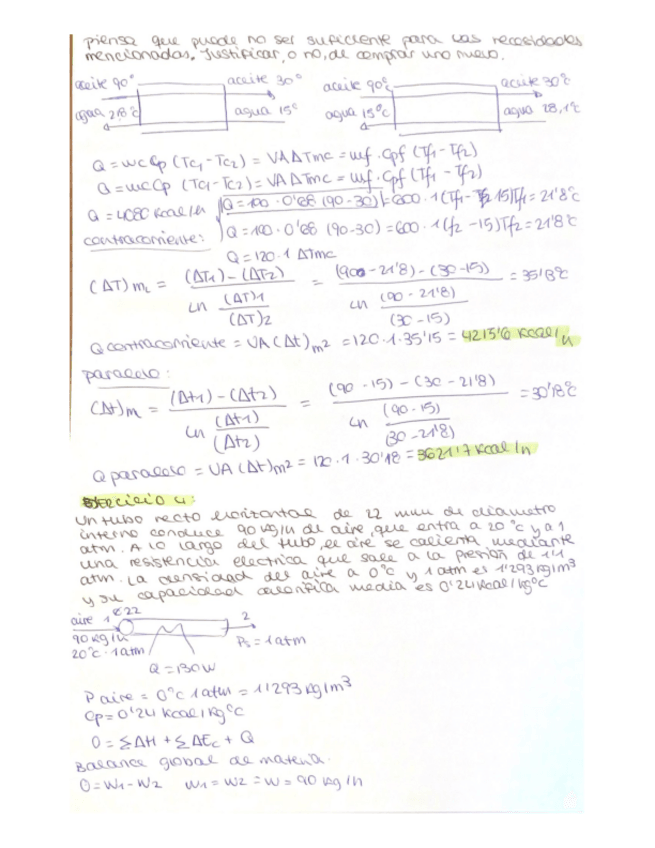 piensa que puede no ser suficiente para las necesidades
mencionadas. Justificar, o no, de comprar uno nuevo.
aceite 90° aceite 30° aceite 90°c aceite 30°c
agua 15° agua 15°c agua 28,1°c
Q = wc Cp (Tc1 - Tc2) = VA ΔTmc = wf · Cpf (Tf1 - Tf2)
Q = wc Cp (Tc1 - Tc2) = VA ΔTmc = wf · Cpf (Tf1 - Tf2)
Q = 4080 kcal/h Q = 100 · 0'68 (90-30) = 600 · 1 (Tf1 - 15) Tf1 = 21'8°c
contracorriente: Q = 100 · 0'68 (90-30) = 600 · 1 (f2 - 15) Tf2 = 21'8°c
Q = 120 · 1 ΔTmc
(ΔT) m2 = (ΔT1) - (ΔT2) / ln (ΔT)1 / (ΔT)2 = (90 - 21'8) - (30 - 15) / ln (90 - 21'8) / (30 - 15) = 35'13°c
Q contracorriente = VA (Δt) m2 = 120 · 1 · 35'15 = 4215'6 kcal/h
paralelo:
(Δt)m = (Δt1) - (Δt2) / ln (Δt1) / (Δt2) = (90 - 15) - (30 - 21'8) / ln (90 - 15) / (30 - 21'8) = 30'18°c
Q paralelo = VA (Δt) m2 = 120 · 1 · 30'18 = 3621'7 kcal/h
Ejercicio 4:
Un tubo recto horizontal de 22 mm de diametro
interno conduce 90 kg/h de aire, que entra a 20°c y a 1
atm. A lo largo del tubo, el aire se calienta mediante
una resistencia electrica que sale a la presion de 1'1
atm. La densidad del aire a 0°c y 1 atm es 1'293 kg/m3
y su capacidad calorifica media es 0'24 kcal/kg°c
aire 1 ¢22 2
90 kg/h
20°c · 1 atm Ps = 1 atm
Q = 130 W
P aire = 0°c 1 atm = 1'293 kg/m3
Cp = 0'24 kcal/kg°C
0 = ΣΔH + ΣΔEc + Q
Balance global de materia.
0 = W1 - W2 W1 = W2 = W = 90 kg/h